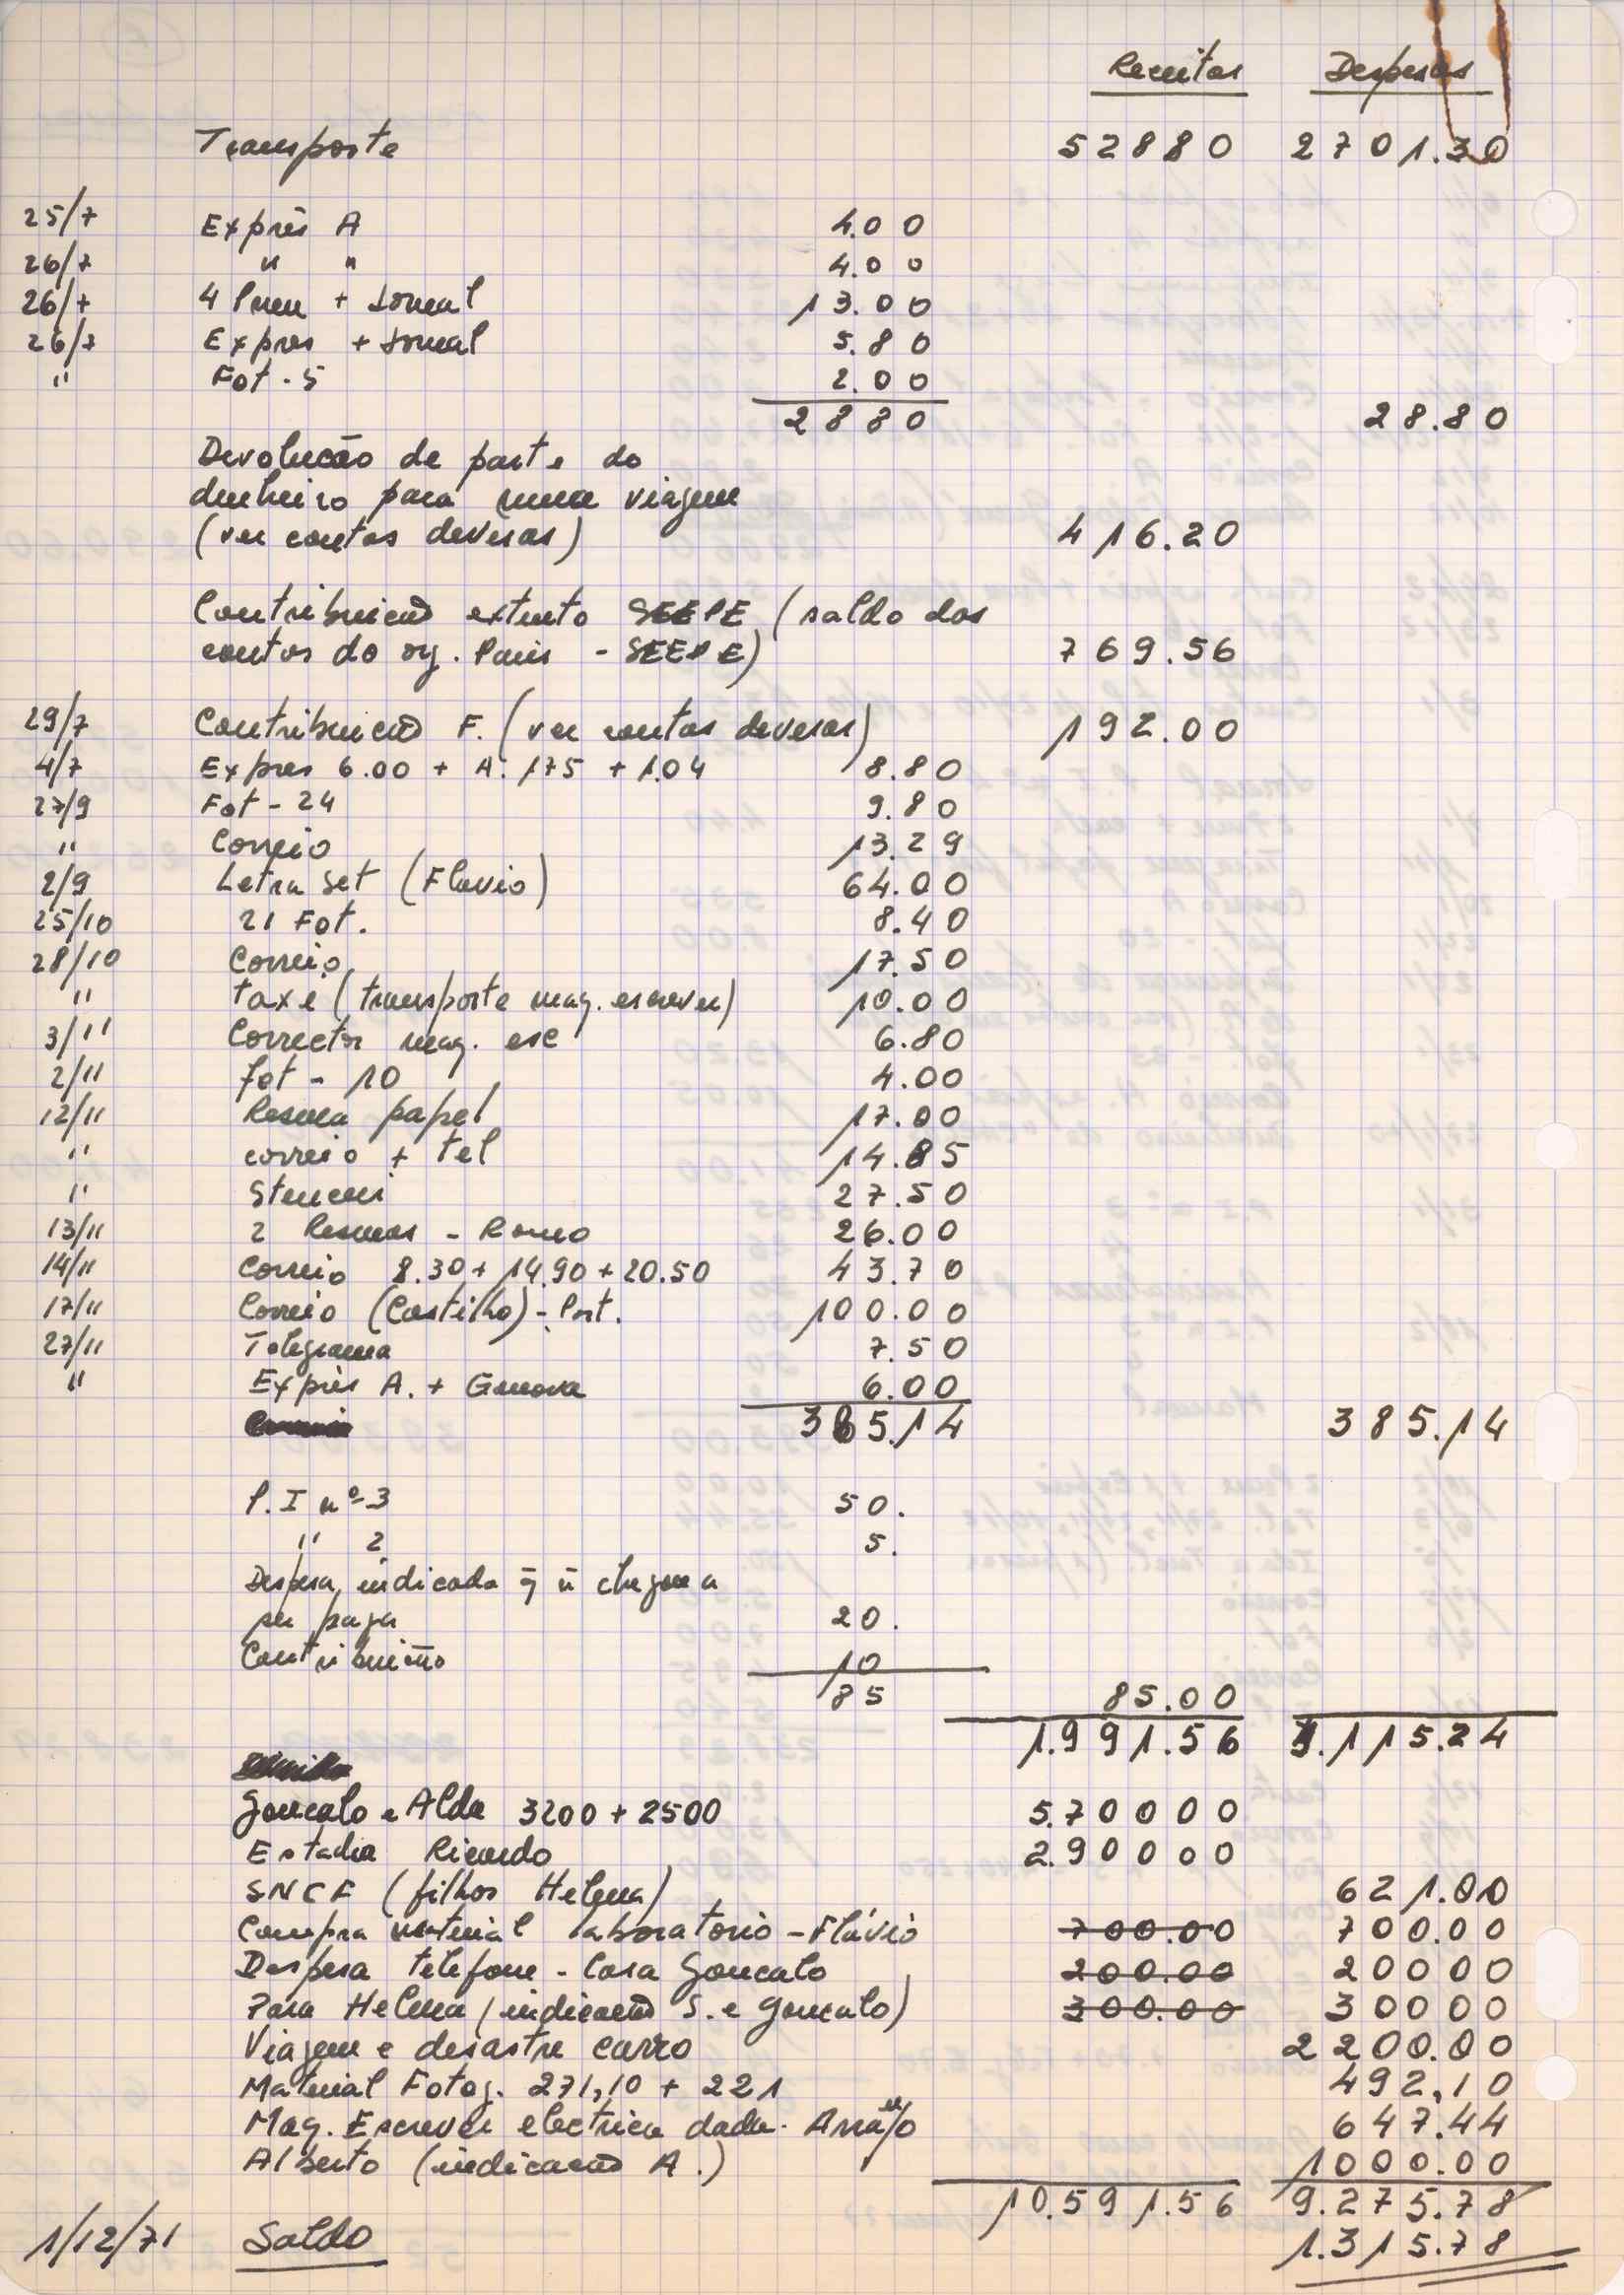 Receitas Despesas
Transporte 52880 2701.30
25/7 Exprès A 4.00
26/7 " " 4.00
26/7 4 Pneu + Jornal 13.00
26/7 Expres + Jornal 5.80
" Fot - 5 2.00
2880 28.80
Devolucão de parte do
dinheiro para uma viagem
(ver contas deveras) 416.20
Contribuicão extinto SEEPE (saldo das
contas do org. Paris - SEEPE) 769.56
29/7 Contribuicão F. (ver contas deveras) 192.00
4/7 Expres 6.00 + A. 175 + 1.04 8.80
27/9 Fot - 24 9.80
" Correio 13.29
2/9 Letra Set (Flavio) 64.00
25/10 21 Fot. 8.40
28/10 Correio 17.50
" taxi (transporte maq. escrever) 10.00
3/11 Corrector maq. esc 6.80
2/11 fot - 10 4.00
12/11 Resma papel 17.00
" correio + tel 14.85
" Stencis 27.50
13/11 2 Resmas - Romo 26.00
14/11 Correio 8.30 + 14.90 + 20.50 43.70
17/11 Correio (Castilho) - Port. 100.00
27/11 Telegrama 7.50
" Exprès A. + Genova 6.00
385.14 385.14
P. I nº 3 50.
" 2 5.
Despesa indicada q̄ ñ chegou a
ser paga 20.
Contribuicão 10
85 85.00
1.991.56 3.115.24
Goncalo e Alda 3200 + 2500 5.70000
Estadia Ricardo 2.90000
SNCF (filhos Helena) 621.00
Compra material laboratorio - Flávio 700.00 700.00
Despesa telefone - Casa Goncalo 200.00 20000
Para Helena (indicacão S. e Goncalo) 300.00 30000
Viagem e desastre carro 2200.00
Material Fotog. 271,10 + 221 492,10
Maq. Escrever electrica dada 647.44
Alberto (indicacão A.) 1000.00
10.591.56 9.275.78
1/12/71 Saldo 1.315.78